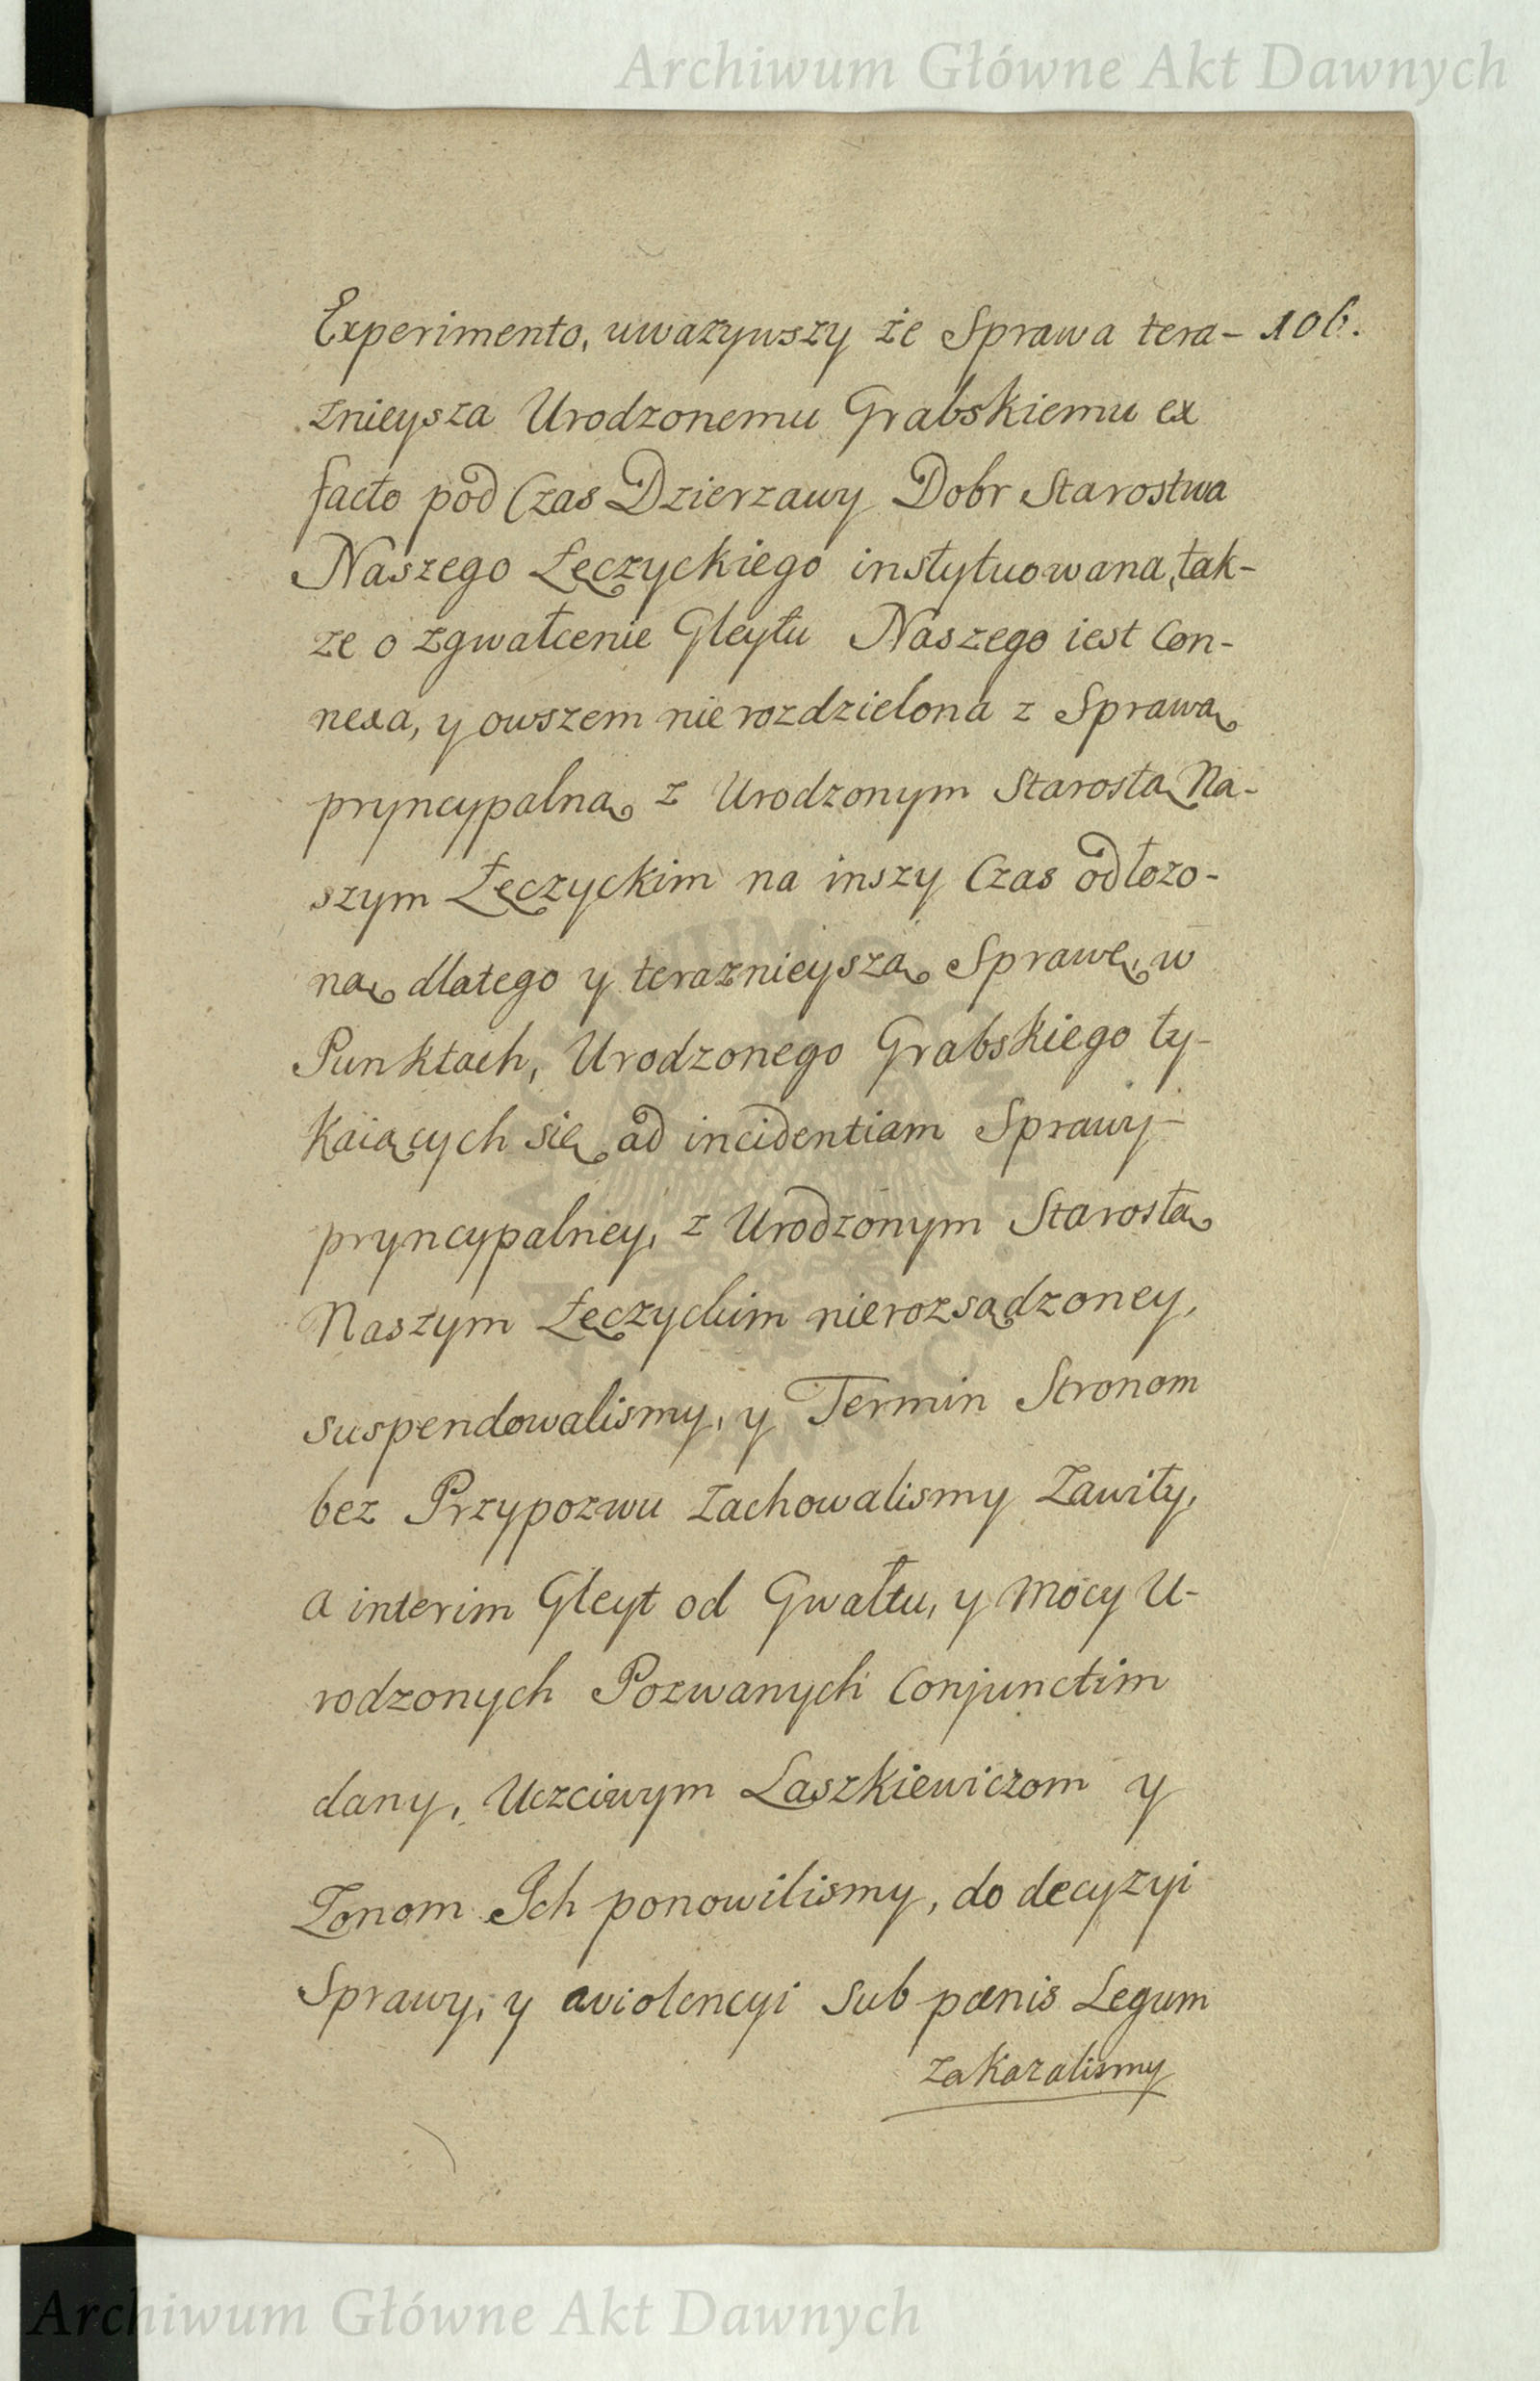 Archiwum Główne Akt Dawnych
Experimento, uwazywszy że Sprawa tera- 106.
znieysza Urodzonemu Grabskiemu ex
facto pod Czas Dzierzawy Dobr Starostwa
Naszego Łęczyckiego instytuowana, tak-
ze o zgwałcenie Gleytu Naszego iest Con-
nexa, y owszem nierozdzielona z Sprawą
pryncypalną z Urodzonym Starostą Na-
szym Łęczyckim na inszy Czas odłozo-
ną dlatego y teraznieyszą Sprawę, w
Punktach, Urodzonego Grabskiego ty-
kaiących się ad incidentiam Sprawy
pryncypalney, z Urodzonym Starostą
Naszym Łęczyckim nierozsądzoney,
suspendowalismy, y Termin Stronom
bez Przypozwu zachowalismy Zawity,
a interim Gleyt od Gwałtu, y Mocy U-
rodzonych Pozwanych Conjunctim
dany, Uczciwym Laszkiewiczom y
Zonom Ich ponowilismy, do decyzyi
Sprawy, y aviolencyi sub pænis Legum
zakazalismy
Archiwum Główne Akt Dawnych